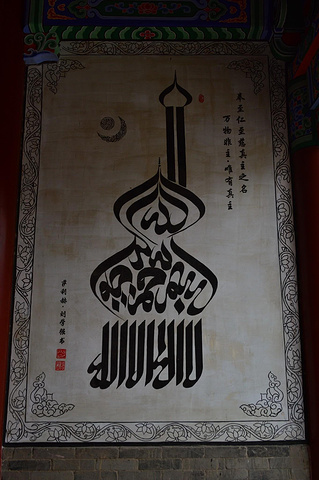 奉至仁至慈真主之名
万物非主·唯有真主
بسم الله الرحمن الرحيم
لا إله إلا الله